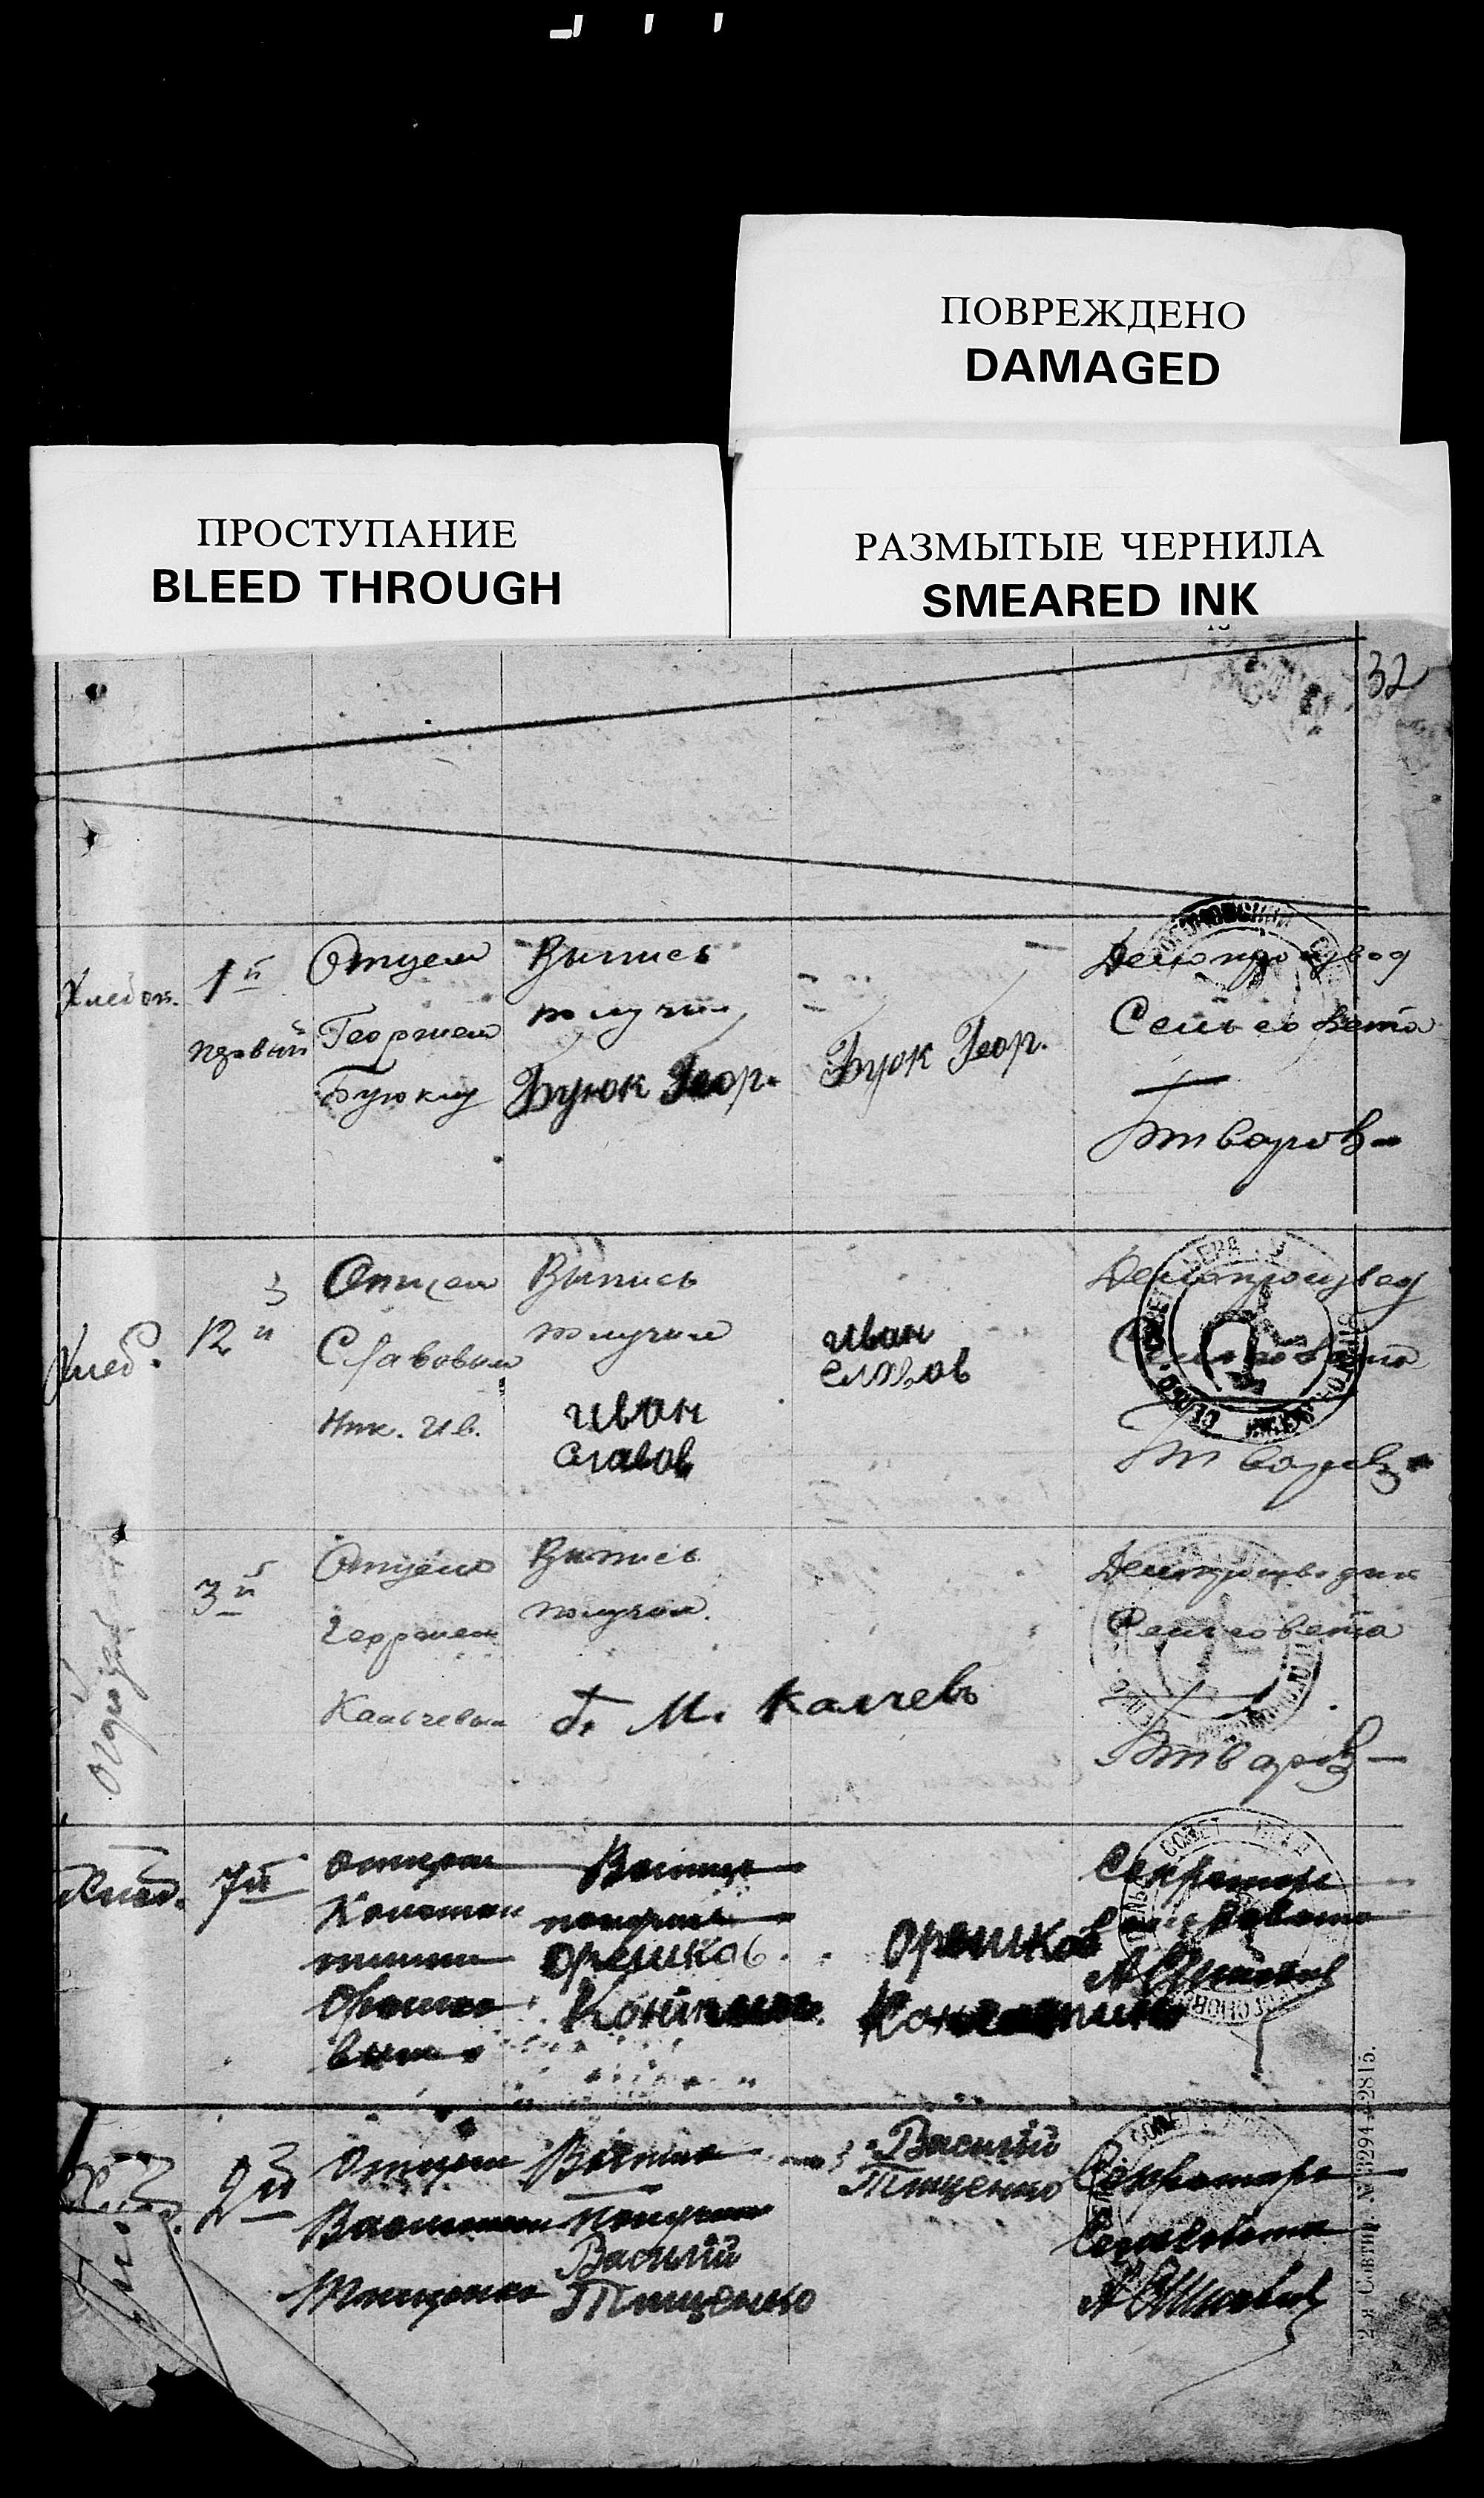 ПОВРЕЖДЕНО
DAMAGED
ПРОСТУПАНИЕ
BLEED THROUGH
РАЗМЫТЫЕ ЧЕРНИЛА
SMEARED INK
32
1й
первый
Отцем
Георгием
Буюклу
Выпись
получил
Буюк Геор.
Буюк Геор.
Делопроизвод
Сельсовета
Хлеб.
12й
Отцем
Славовым
Ник. Ив.
Выпись
получил
Иван
Славов
Иван
Славов
Делопроизвод
Сельсовета
3й
Отцем
Георгием
Кальчевым
Выпись
получил.
Г. М. Калчевъ
Сельсовета
7й
отцем
Констан
тином
Орешко
вым
Выпись
получил
Орешков
Константин
Орешков
Константин
Секретарь
Сельсовета
9й
Отцем
Василием
Тищенко
Выпись
получил
Василий
Тищенко
Василий
Тищенко
Секретарь
Сельсовета